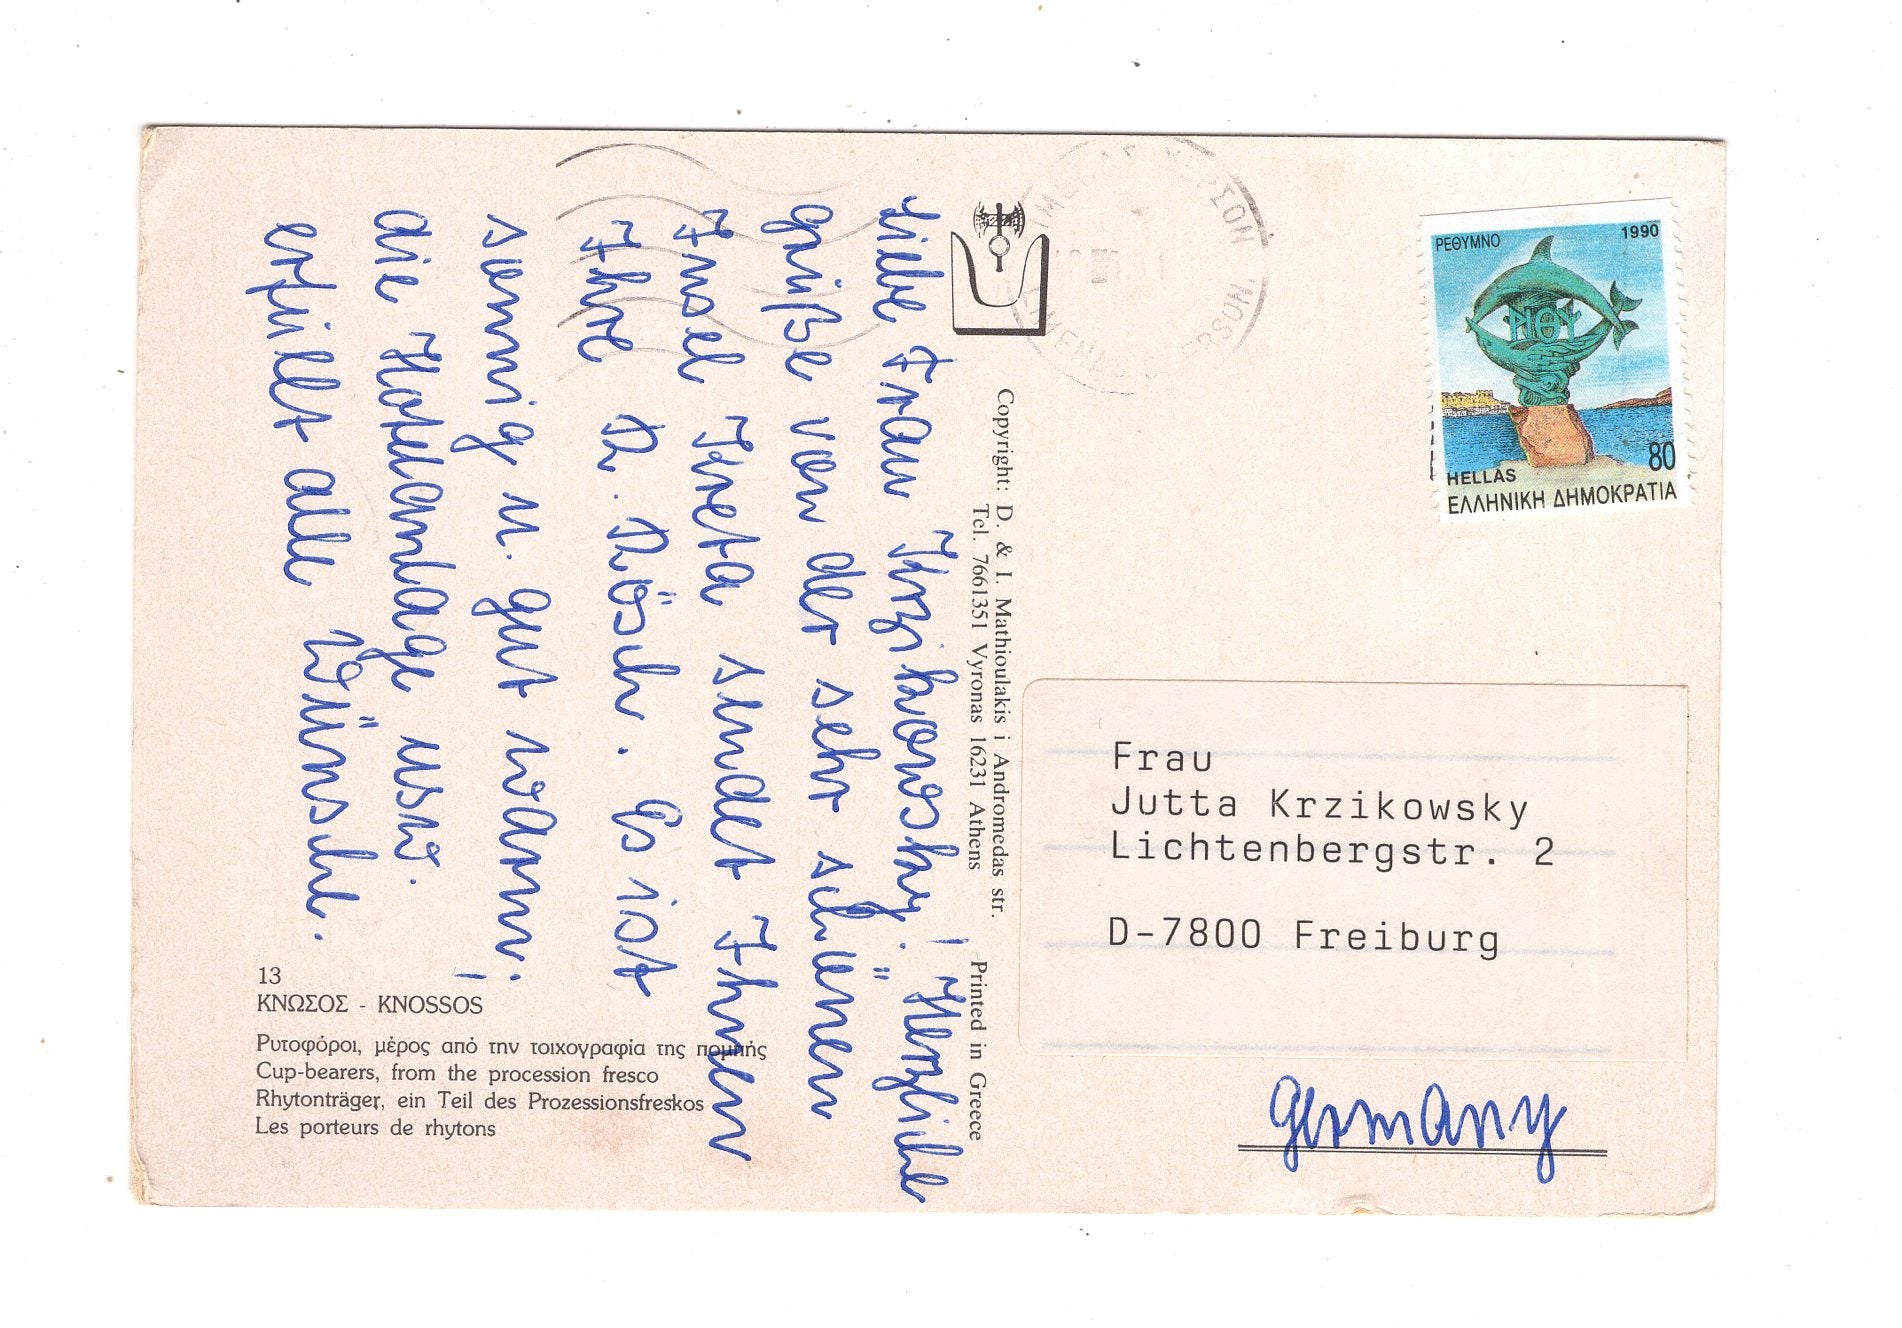 Liebe Frau Krzikowsky! Herzliche
Grüße von der sehr schönen
Insel Kreta sendet Ihnen
Ihre R. Rösch. Es ist
sonnig u. gut warm,
die Hotelanlage usw.
erfüllt alle Wünsche.
13
ΚΝΩΣΟΣ - KNOSSOS
Ρυτοφόροι, μέρος από την τοιχογραφία της πομπής
Cup-bearers, from the procession fresco
Rhytonträger, ein Teil des Prozessionsfreskos
Les porteurs de rhytons
Copyright: D. & I. Mathioulakis i Andromedas str.
Tel. 7661351 Vyronas 16231 Athens
Printed in Greece
ΡΕΘΥΜΝΟ 1990
ΡΙΘΥ
80
HELLAS
ΕΛΛΗΝΙΚΗ ΔΗΜΟΚΡΑΤΙΑ
Frau
Jutta Krzikowsky
Lichtenbergstr. 2
D-7800 Freiburg
Germany